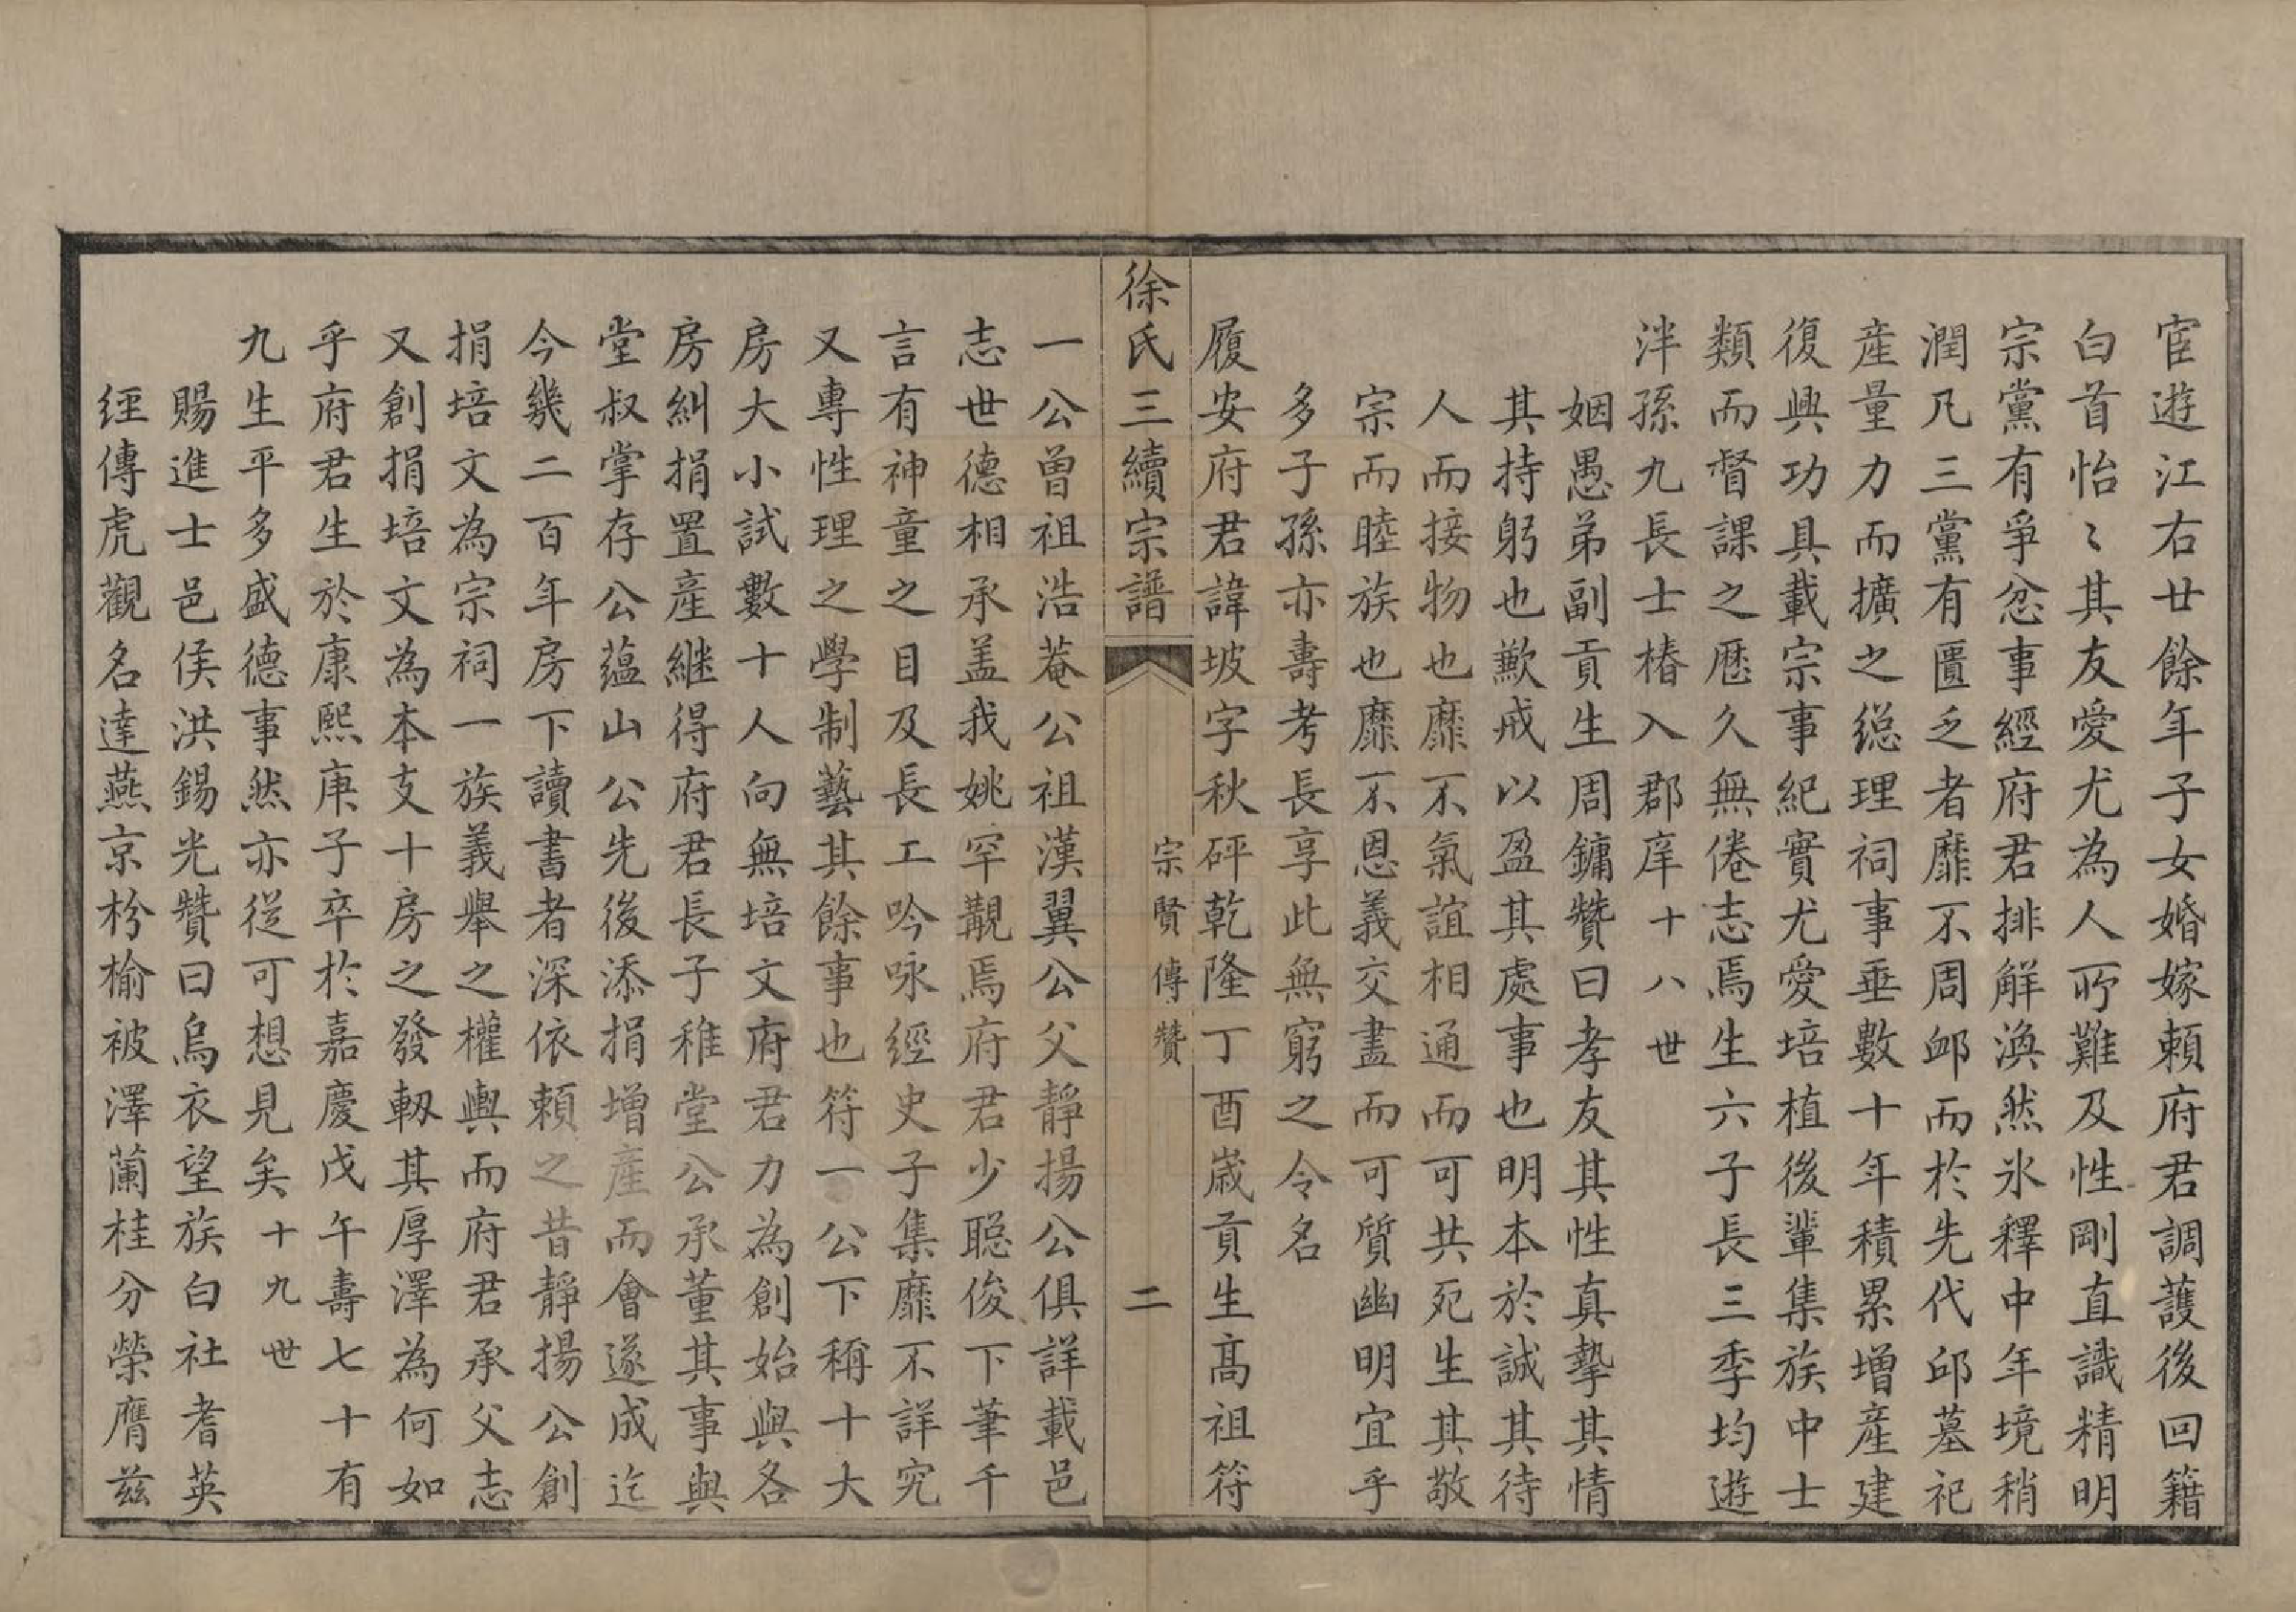 宦遊江右廿餘年子女婚嫁賴府君調護後回籍
白首怡〻其友愛尤為人所難及性剛直識精明
宗黨有爭忿事經府君排解渙然氷釋中年境稍
潤凡三黨有匱乏者靡不周卹而於先代邱墓祀
產量力而擴之總理祠事垂數十年積累增產建
復興功具載宗事紀實尤愛培植後輩集族中士
類而督課之歷久無倦志焉生六子長三季均遊
泮孫九長士椿入郡庠十八世
姻愚弟副貢生周鏞贊曰孝友其性真摯其情
其持躬也歉戒以盈其處事也明本於誠其待
人而接物也靡不氣誼相通而可共死生其敬
宗而睦族也靡不恩義交盡而可質幽明宜乎
多子孫亦壽考長享此無窮之令名
履安府君諱坡字秋砰乾隆丁酉歲貢生高祖符
徐氏三續宗譜
宗賢傳贊
二
一公曾祖浩菴公祖漢翼公父靜揚公俱詳載邑
志世德相承盖我姚罕覯焉府君少聰俊下筆千
言有神童之目及長工吟咏經史子集靡不詳究
又專性理之學制藝其餘事也符一公下稱十大
房大小試數十人向無培文府君力為創始與各
房糾捐置產繼得府君長子稚堂公承董其事與
堂叔掌存公蘊山公先後添捐增產而會遂成迄
今幾二百年房下讀書者深依賴之昔靜揚公創
捐培文為宗祠一族義舉之權輿而府君承父志
又創捐培文為本支十房之發軔其厚澤為何如
乎府君生於康熙庚子卒於嘉慶戊午壽七十有
九生平多盛德事然亦從可想見矣十九世
賜進士邑侯洪錫光贊曰烏衣望族白社耆英
經傳虎觀名達燕京枌榆被澤蘭桂分榮膺茲